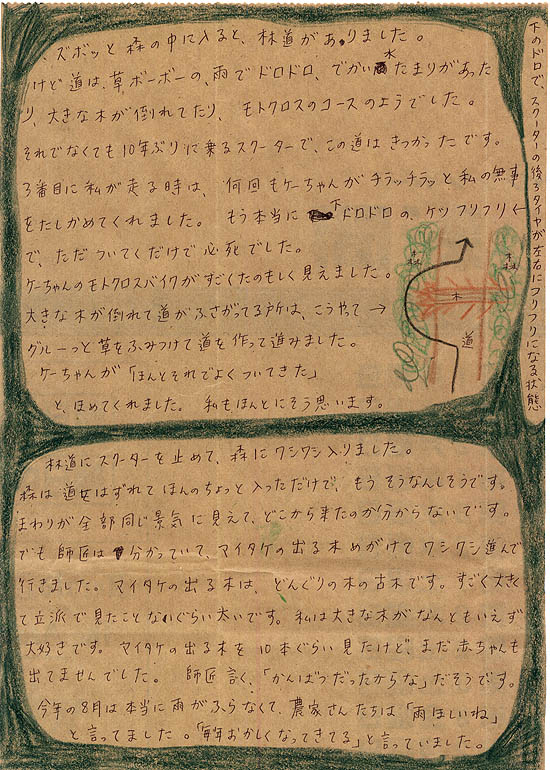 、ズボッと森の中に入ると、林道がありました。
けど道は、草ボーボーの、雨でドロドロ、でかい水たまりがあった
り、大きな木が倒れてたり、モトクロスのコースのようでした。
それでなくても10年ぶりに乗るスクーターで、この道はきつかったです。
3番目に私が走る時は、何回もケーちゃんがチラッチラッと私の無事
をたしかめてくれました。もう本当に下ドロドロの、ケツフリフリ←
で、ただついてくだけで必死でした。
ケーちゃんのモトクロスバイクがすごくたのもしく見えました。
大きな木が倒れて道がふさがってる所は、こうやって→
グルーっと草をふみつけて道を作って進みました。
ケーちゃんが「ほんとそれでよくついてきた」
と、ほめてくれました。私もほんとにそう思います。
下のドロで、スクーターの後ろタイヤが左右にフリフリになる状態
森
森
木
道
林道にスクーターを止めて、森にワシワシ入りました。
森は道をはずれてほんのちょっと入っただけで、もうそうなんしそうです。
まわりが全部同じ景気に見えて、どこから来たのか分からないです。
でも師匠は分かっていて、マイタケの出る木めがけてワシワシ進んで
行きました。マイタケの出る木は、どんぐりの木の古木です。すごく大きく
て立派で見たことないぐらい太いです。私は大きな木がなんともいえず
大好きです。マイタケの出る木を10本ぐらい見たけど、まだ赤ちゃんも
出てませんでした。師匠言く、「かんばつだったからな」だそうです。
今年の8月は本当に雨がふらなくて、農家さんたちは「雨ほしいね」
と言ってました。「毎年おかしくなってきてる」と言っていました。